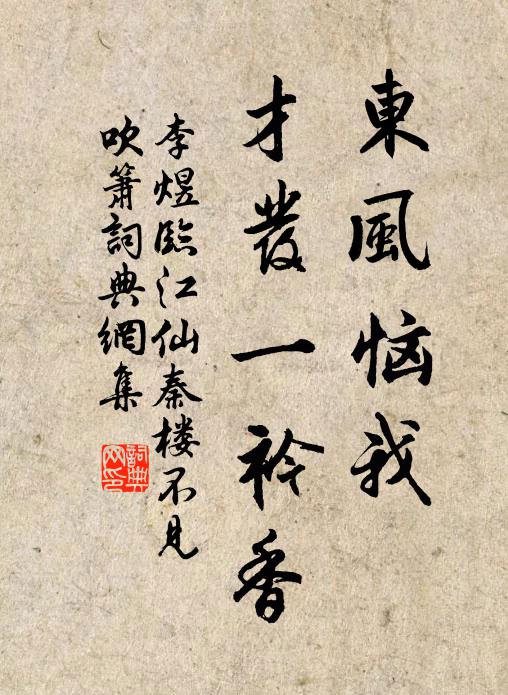 東風恼我
才發一衿香
李煜臨江仙秦楼不見
吹簫詞典網集
詞典网印